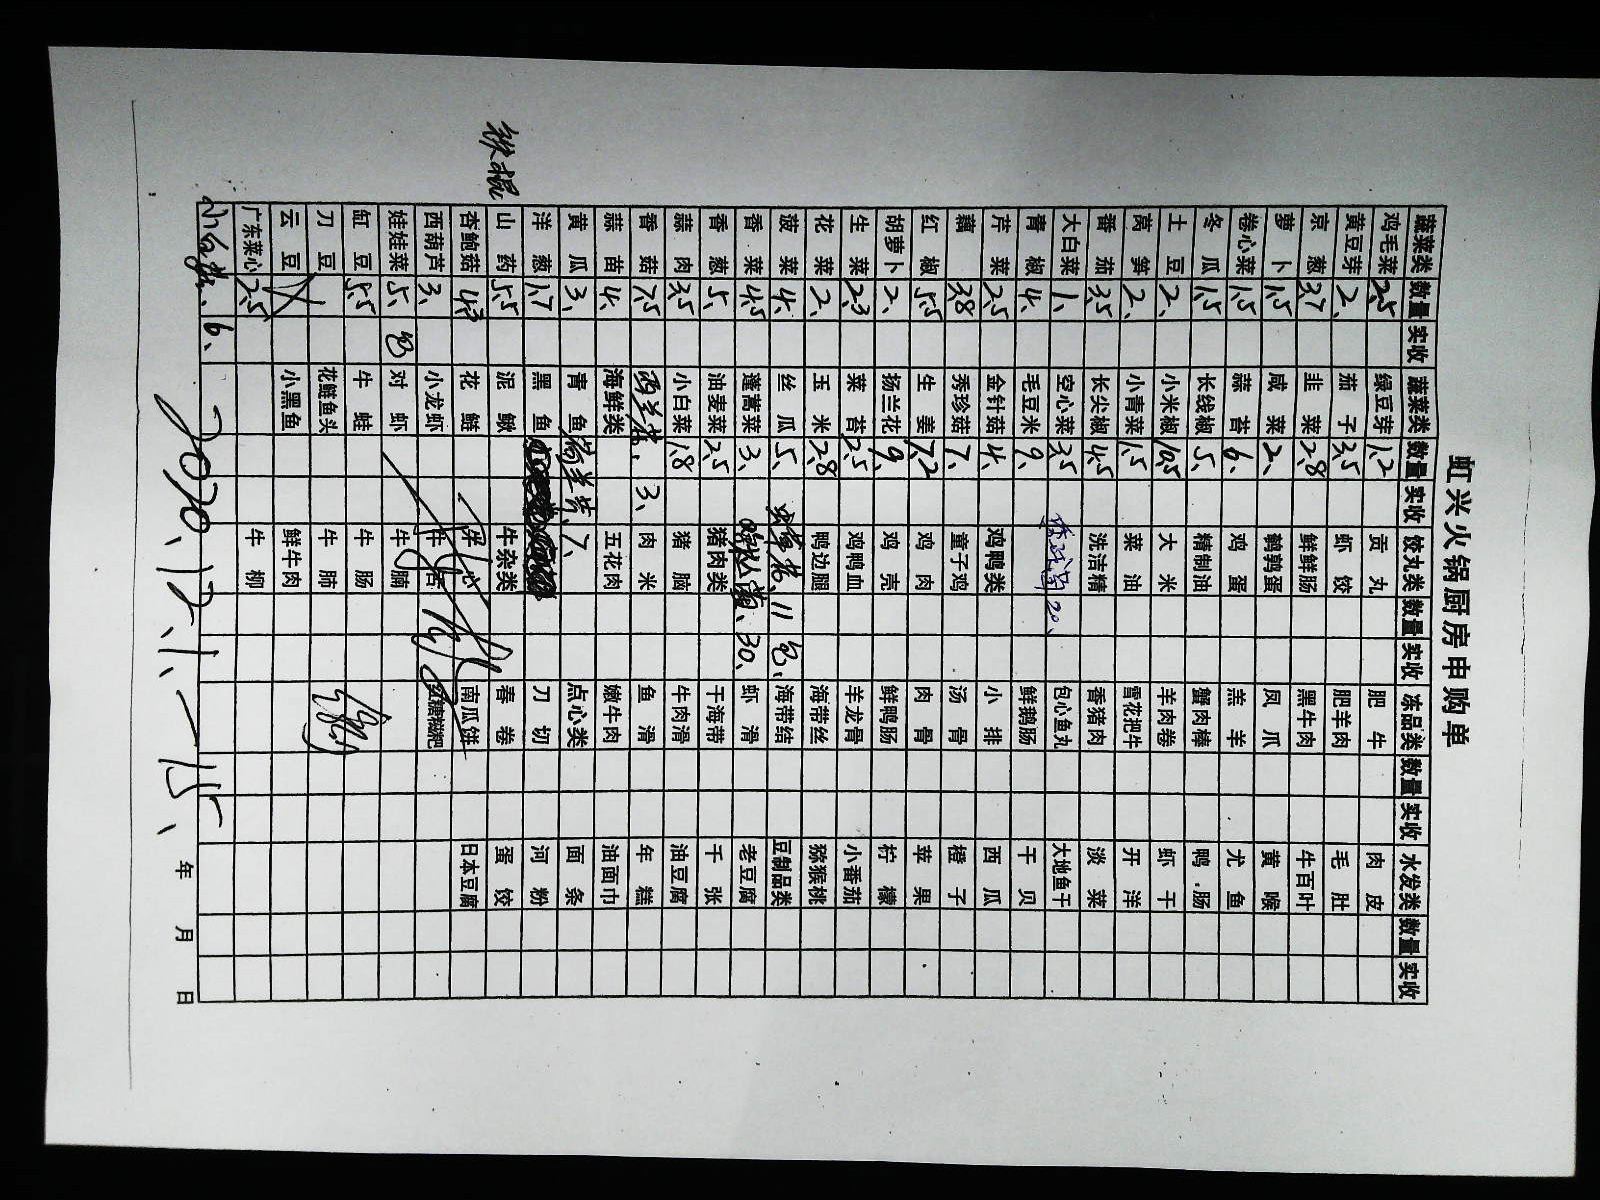 虹兴火锅厨房申购单
蔬菜类 数量 实收 蔬菜类 数量 实收 饺丸类 数量 实收 冻品类 数量 实收 水发类 数量 实收
鸡毛菜 2.5 绿豆芽 1.2 贡丸 肥牛 肉皮
黄豆芽 2、 茄子 3.5 虾饺 肥羊肉 毛肚
京葱 3.7 韭菜 2.8 鲜鲜肠 黑牛肉 牛百叶
萝卜 1.5 咸菜 2、 鹌鹑蛋 凤爪 黄喉
卷心菜 1.5 蒜苔 6、 鸡蛋 羔羊 尤鱼
冬瓜 1.5 长线椒 5、 精制油 蟹肉棒 鸭肠
土豆 2、 小米椒 10.5 大米 羊肉卷 虾干
莴笋 2、 小青菜 1.5 菜油 雪花把牛 开洋
番茄 3.5 长尖椒 4.5 洗洁精 香猪肉 淡菜
大白菜 1、 空心菜 3.5 20、 包心鱼丸 大地鱼干
青椒 4、 毛豆米 9、 鲜鹅肠 干贝
芹菜 2.5 金针菇 4、 鸡鸭类 小排 西瓜
藕 3.8 秀珍菇 7、 童子鸡 汤骨 橙子
红椒 5.5 生姜 7.2 鸡肉 肉骨 苹果
胡萝卜 2、 扬兰花 9、 鸡壳 鲜鸭肠 柠檬
生菜 2.3 菜苔 2.5 鸡鸭血 羊龙骨 小番茄
花菜 2、 玉米 2.8 鸭边腿 海带丝 猕猴桃
菠菜 4、 丝瓜 5、 虫草花、11包、 海带结 豆制品类
香菜 4.5 蓬蒿菜 3、 30、 虾滑 老豆腐
香葱 5、 油麦菜 2.5 猪肉类 干海带 千张
蒜肉 3.5 小白菜 1.8 猪脑 牛肉滑 油豆腐
香菇 7.5 西兰花、3、 肉米 鱼滑 年糕
蒜苗 4、 海鲜类 五花肉 嫩牛肉 油面巾
黄瓜 3、 青鱼 7、 点心类 面条
洋葱 1.7 黑鱼 刀切 河粉
铁棍 山药 5.5 泥鳅 牛杂类 春卷 蛋饺
杏鲍菇 4.3 花鲢 牛心 南瓜饼 日本豆腐
西葫芦 3、 小龙虾 牛舌 红糖糍粑
娃娃菜 5、包 对虾 牛腩
缸豆 5.5 牛蛙 牛肠
刀豆 花鲢鱼头 牛肺
云豆 小黑鱼 鲜牛肉
广东菜心 2.5 牛柳
6、
2020、12、1、—15、 年 月 日